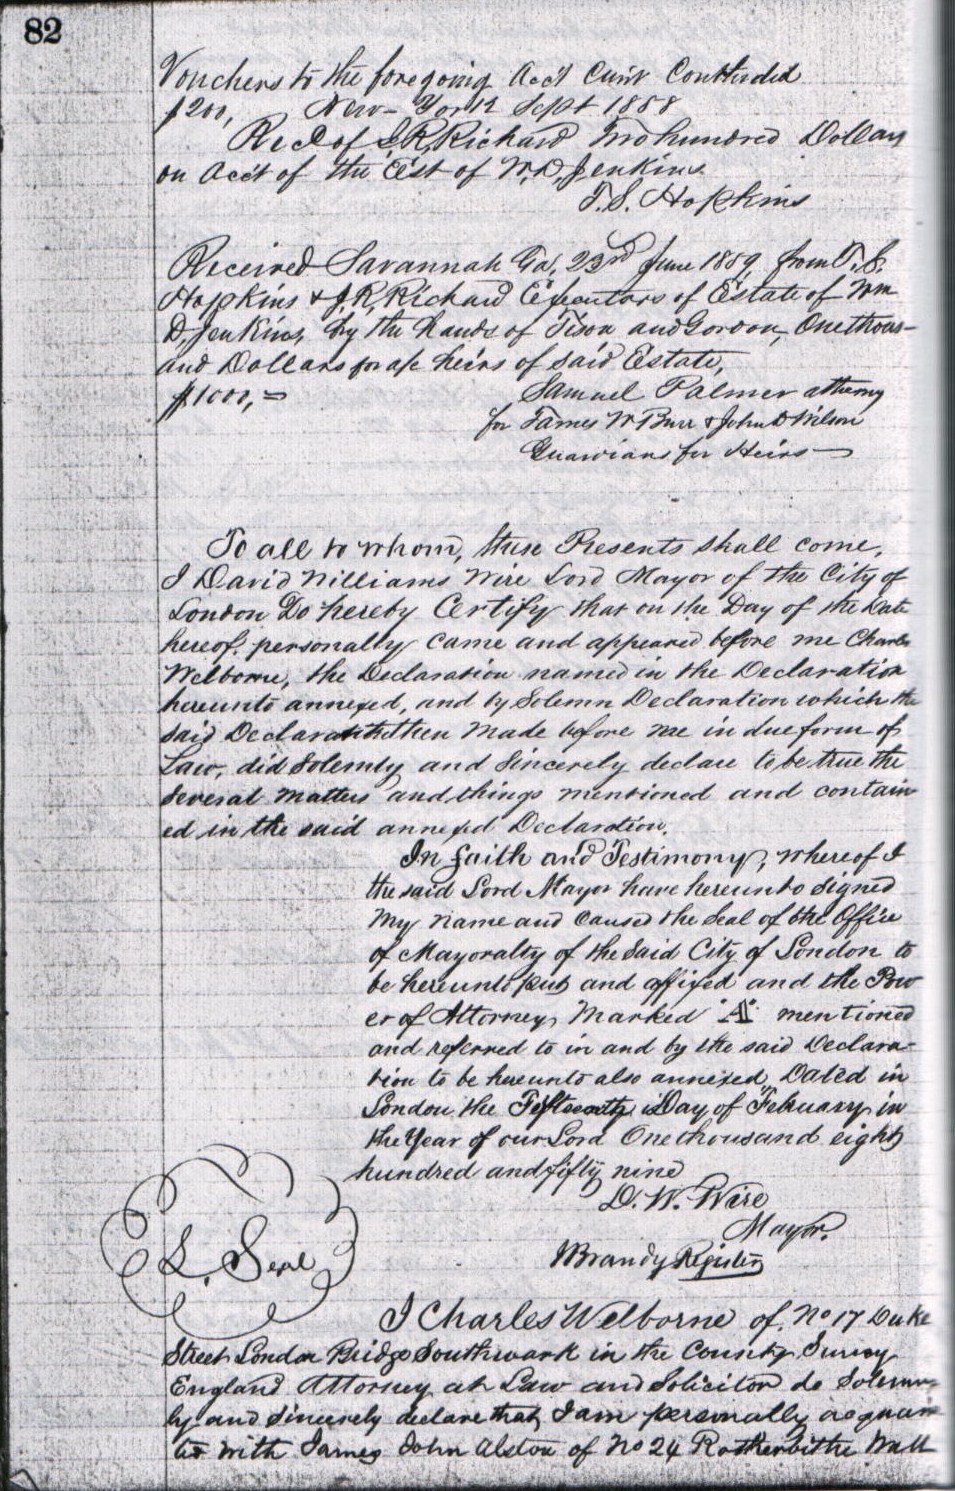 82
Vouchers to the foregoing Acct Curnt Continued
$200, New-York Sept 1858
Recd of J R Richard Two hundred Dollars
on Acct of the Est of W. D. Jenkins.
T. S. Hopkins
Received Savannah Ga, 23rd June 1859, from T. S.
Hopkins & J. R. Richard Executors of Estate of Wm
D. Jenkins, by the hands of Tison and Gordon, One thous-
and Dollars for a/c heirs of said Estate,
$1000,=
Samuel Palmer attorney
for James W Burr & John D Wilson
Guardians for Heirs
To all to whom, these Presents shall come,
I David Williams Wire Lord Mayor of the City of
London Do hereby Certify that on the Day of the Date
hereof, personally came and appeared before me Charles
Welborne, the Declaration named in the Declaration
hereunto annexed, and by Solemn Declaration which the
said Declarant then made before me in due form of
Law, did Solemnly and Sincerely declare to be true the
several matters and things mentioned and contain
ed in the said annexed Declaration.
In faith and Testimony, whereof I
the said Lord Mayor have hereunto signed
my name and caused the Seal of the Office
of Mayoralty of the Said City of London to
be hereunto put and affixed and the Pow
er of Attorney, Marked "A" mentioned
and referred to in and by the said Declara-
tion to be hereunto also annexed. Dated in
London the Fifteenth Day of February in
the Year of our Lord One thousand eight
hundred and fifty nine
D. W. Wire
Mayor.
Brandy Register
L. Seal
I Charles Welborne of. No 17 Duke
Street London Bridge Southwark in the County Surrey
England Attorney at Law and Solicitor do Solemn-
ly and sincerely declare that I am personally acquain
ted with James John Alston of No 24 Rotherhithe Wall